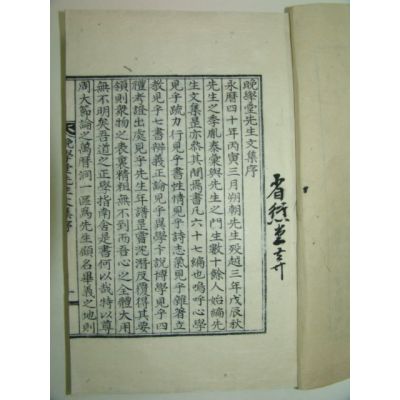 晚學堂先生文集序
永曆四十年丙寅三月朔朝先生歿越三年戊辰秋
先生之季胤泰彙與先生之門生數十餘人始編先
生文集是亦恭其間焉書凡六十七編也嗚呼心學
見乎疏力行見乎書性情見乎詩志氣見乎雜著立
教見乎七書辯義正論見乎異學卞說博學見乎四
禮考證出處見乎先生年譜是嘗沈潛反復得其要
領則衆物之表裏精粗無不到而吾心之全體大用
無不明矣吾道之正學指南舍是書何以哉特以尊
周大節論之萬曆洞一區爲先生顧名畢義之地則
晚學堂先生文集序 一